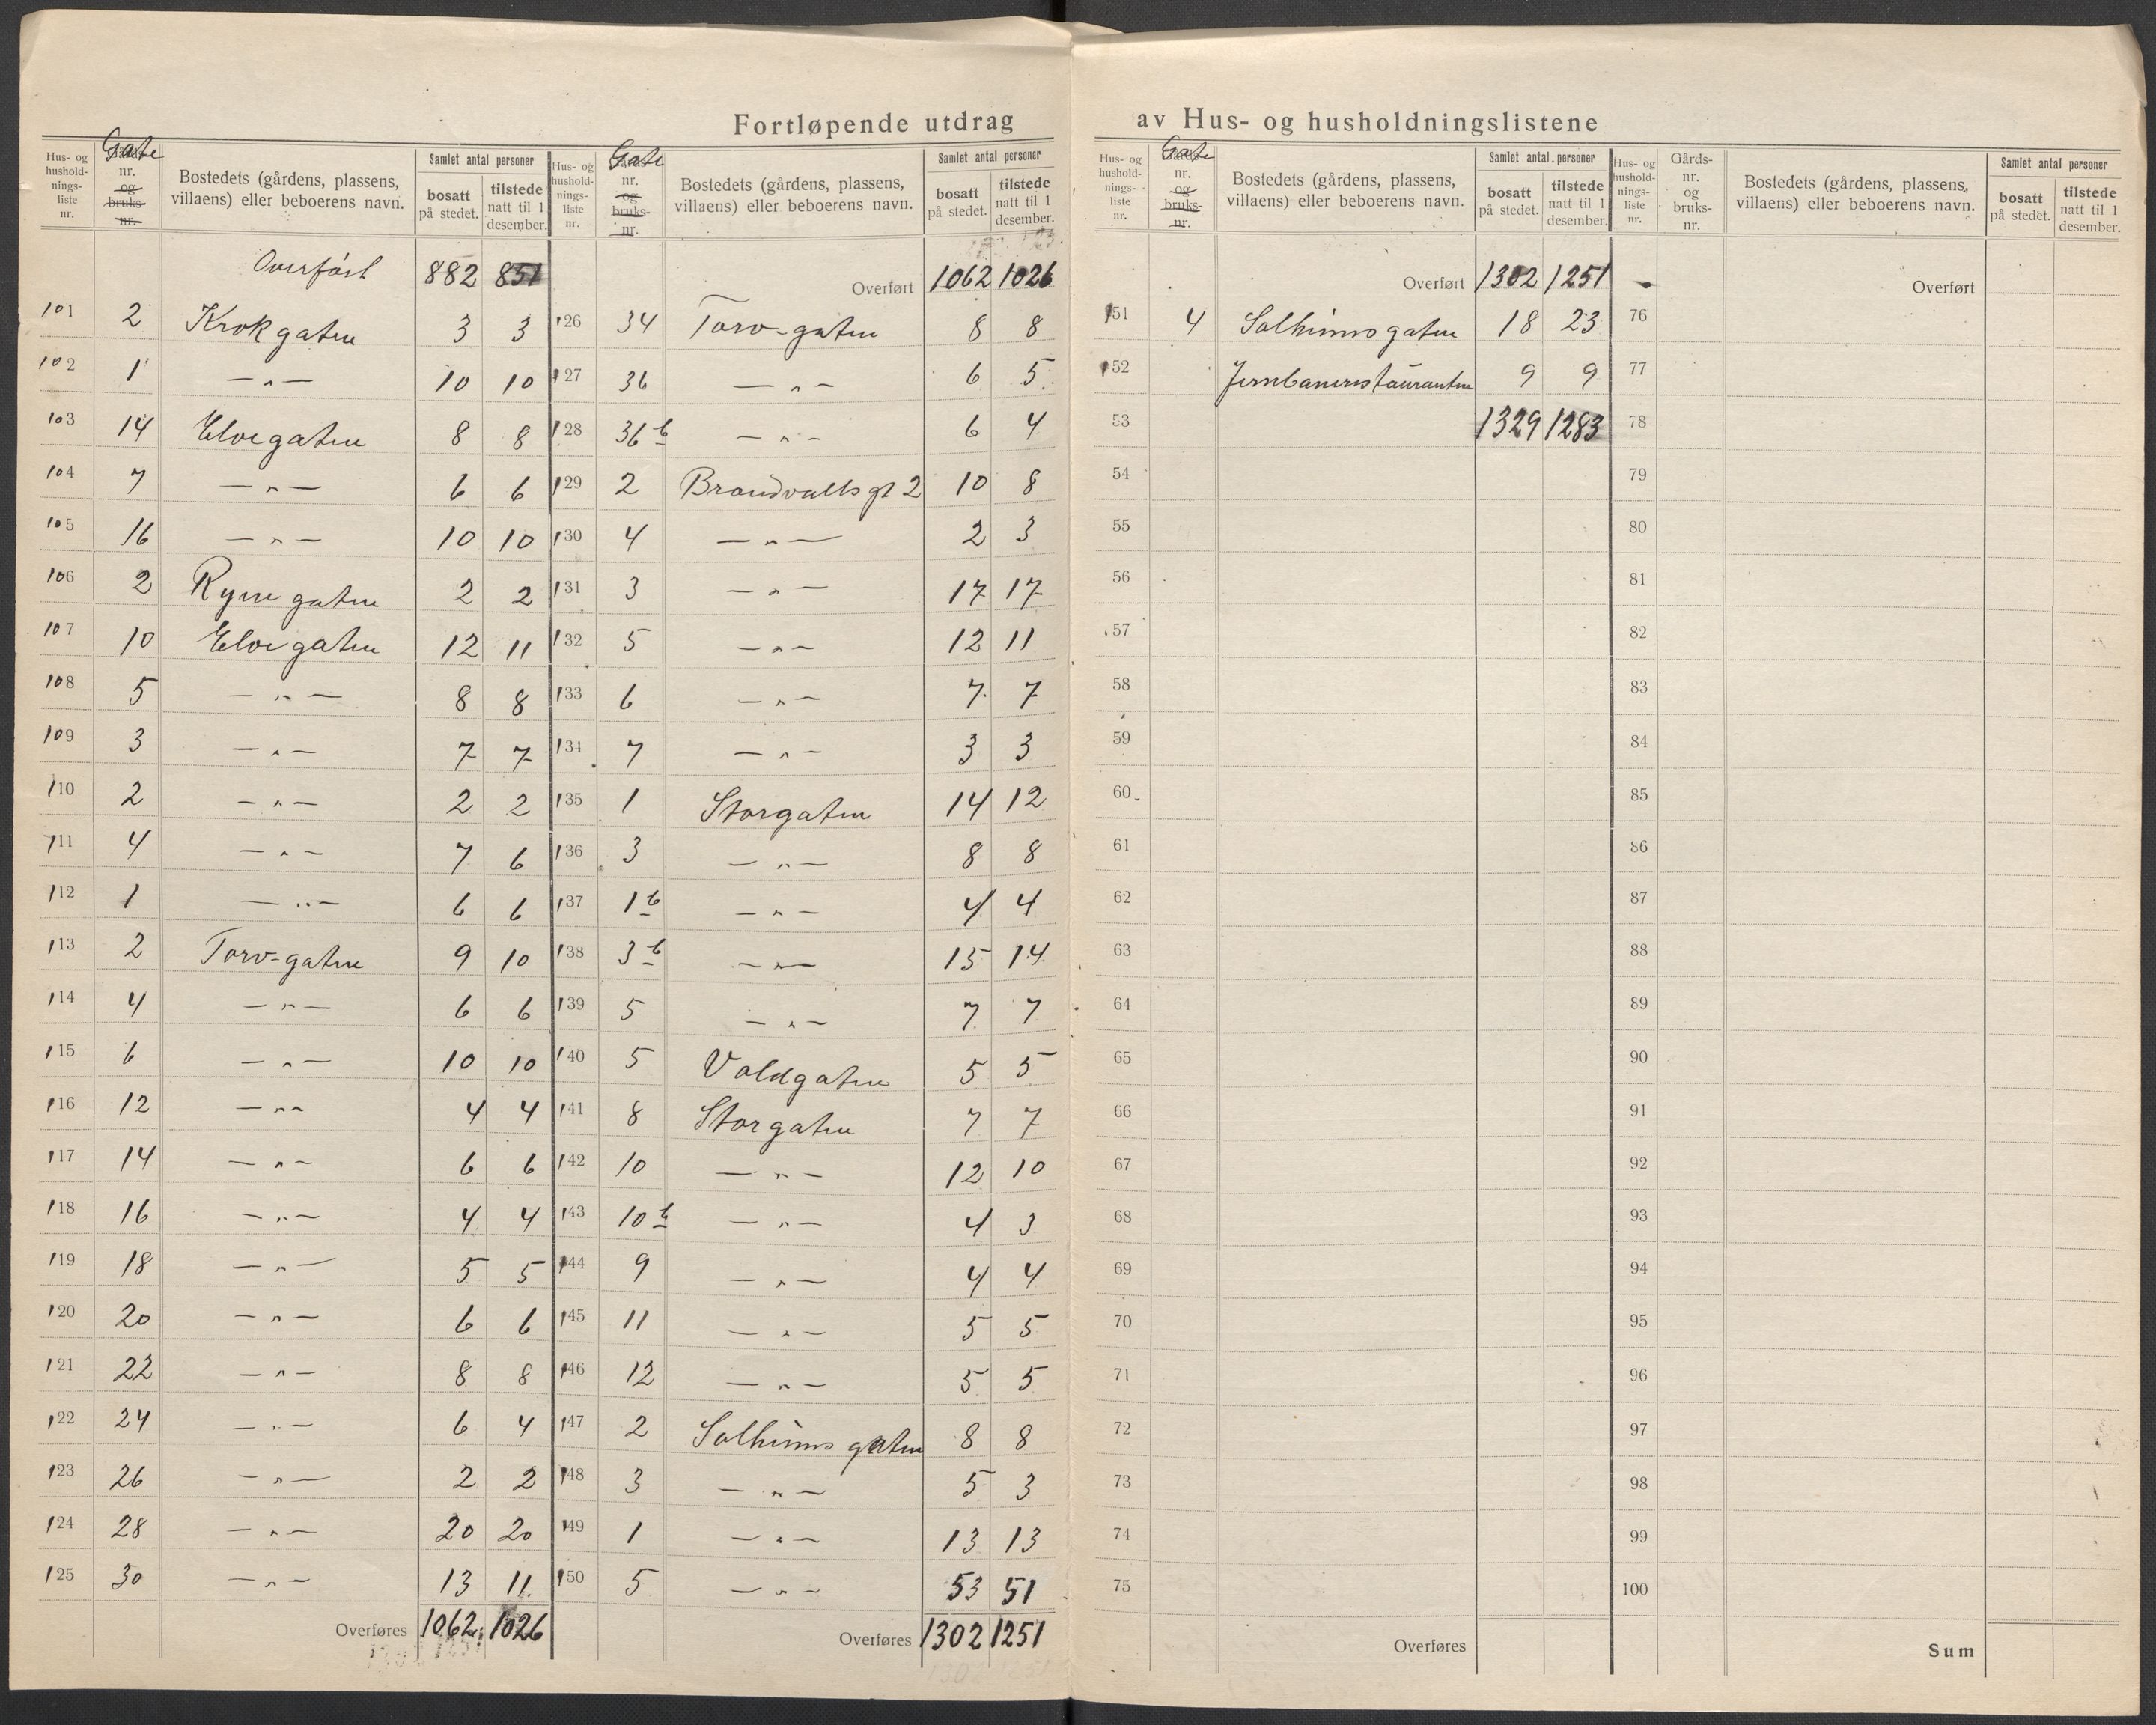 Fortløpende utdrag av Hus- og husholdningslistene
Hus- og hushold-nings-liste nr. | Gate nr. og bruks-nr. | Bostedets (gårdens, plassens, villaens) eller beboerens navn. | Samlet antal personer bosatt på stedet. | tilstede natt til 1 desember.
Overført 882 851
101 2 Krokgaten 3 3
102 1 — " — 10 10
103 14 Elvegaten 8 8
104 7 — " — 6 6
105 16 — " — 10 10
106 2 Rynegaten 2 2
107 10 Elvegaten 12 11
108 5 — " — 8 8
109 3 — " — 7 7
110 2 — " — 2 2
111 4 — " — 7 6
112 1 — " — 6 6
113 2 Torv-gaten 9 10
114 4 — " — 6 6
115 6 — " — 10 10
116 12 — " — 4 4
117 14 — " — 6 6
118 16 — " — 4 4
119 18 — " — 5 5
120 20 — " — 6 6
121 22 — " — 8 8
122 24 — " — 6 4
123 26 — " — 2 2
124 28 — " — 20 20
125 30 — " — 13 11
Overføres 1062 1026
Hus- og hushold-nings-liste nr. | Gate nr. og bruks-nr. | Bostedets (gårdens, plassens, villaens) eller beboerens navn. | Samlet antal personer bosatt på stedet. | tilstede natt til 1 desember.
Overført 1062 1026
126 34 Torv-gaten 8 8
127 36 — " — 6 5
128 36 b — " — 6 4
129 2 Brandvalls gt 2 10 8
130 4 — " — 2 3
131 3 — " — 17 17
132 5 — " — 12 11
133 6 — " — 7 7
134 7 — " — 3 3
135 1 Storgaten 14 12
136 3 — " — 8 8
137 1 b — " — 4 4
138 3 b — " — 15 14
139 5 — " — 7 7
140 5 Voldgaten 5 5
141 8 Storgaten 7 7
142 10 — " — 12 10
143 10 b — " — 4 3
144 9 — " — 4 4
145 11 — " — 5 5
146 12 — " — 5 5
147 2 Solheimsgaten 8 8
148 3 — " — 5 3
149 1 — " — 13 13
150 5 — " — 53 51
Overføres 1302 1251
Hus- og hushold-nings-liste nr. | Gate nr. og bruks-nr. | Bostedets (gårdens, plassens, villaens) eller beboerens navn. | Samlet antal personer bosatt på stedet. | tilstede natt til 1 desember.
Overført 1302 1251
151 4 Solheimsgaten 18 23
152 Jernbanerestauranten 9 9
53 1329 1283
54
55
56
57
58
59
60
61
62
63
64
65
66
67
68
69
70
71
72
73
74
75
Overføres
Hus- og hushold-nings-liste nr. | Gårds-nr. og bruks-nr. | Bostedets (gårdens, plassens, villaens) eller beboerens navn. | Samlet antal personer bosatt på stedet. | tilstede natt til 1 desember.
Overført
76
77
78
79
80
81
82
83
84
85
86
87
88
89
90
91
92
93
94
95
96
97
98
99
100
Sum